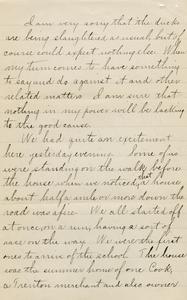 I am very sorry that the ducks
are being slaughtered as usual, but of
course could expect nothing else. When
my turn comes to have something
to say and do against it and other
related matters I am sure that
nothing in my power will be lacking
to the good cause.
We had quite an excitement
here yesterday evening. Some of us
were standing on the walk before
the house when we noticed that a house
about half a mile or more down the
road was afire. We all started off
at once, on a run, having a sort of
race on the way. We were the first
ones to arrive of the school. The house
was the summer home of one Cook,
a Trenton merchant and also owner